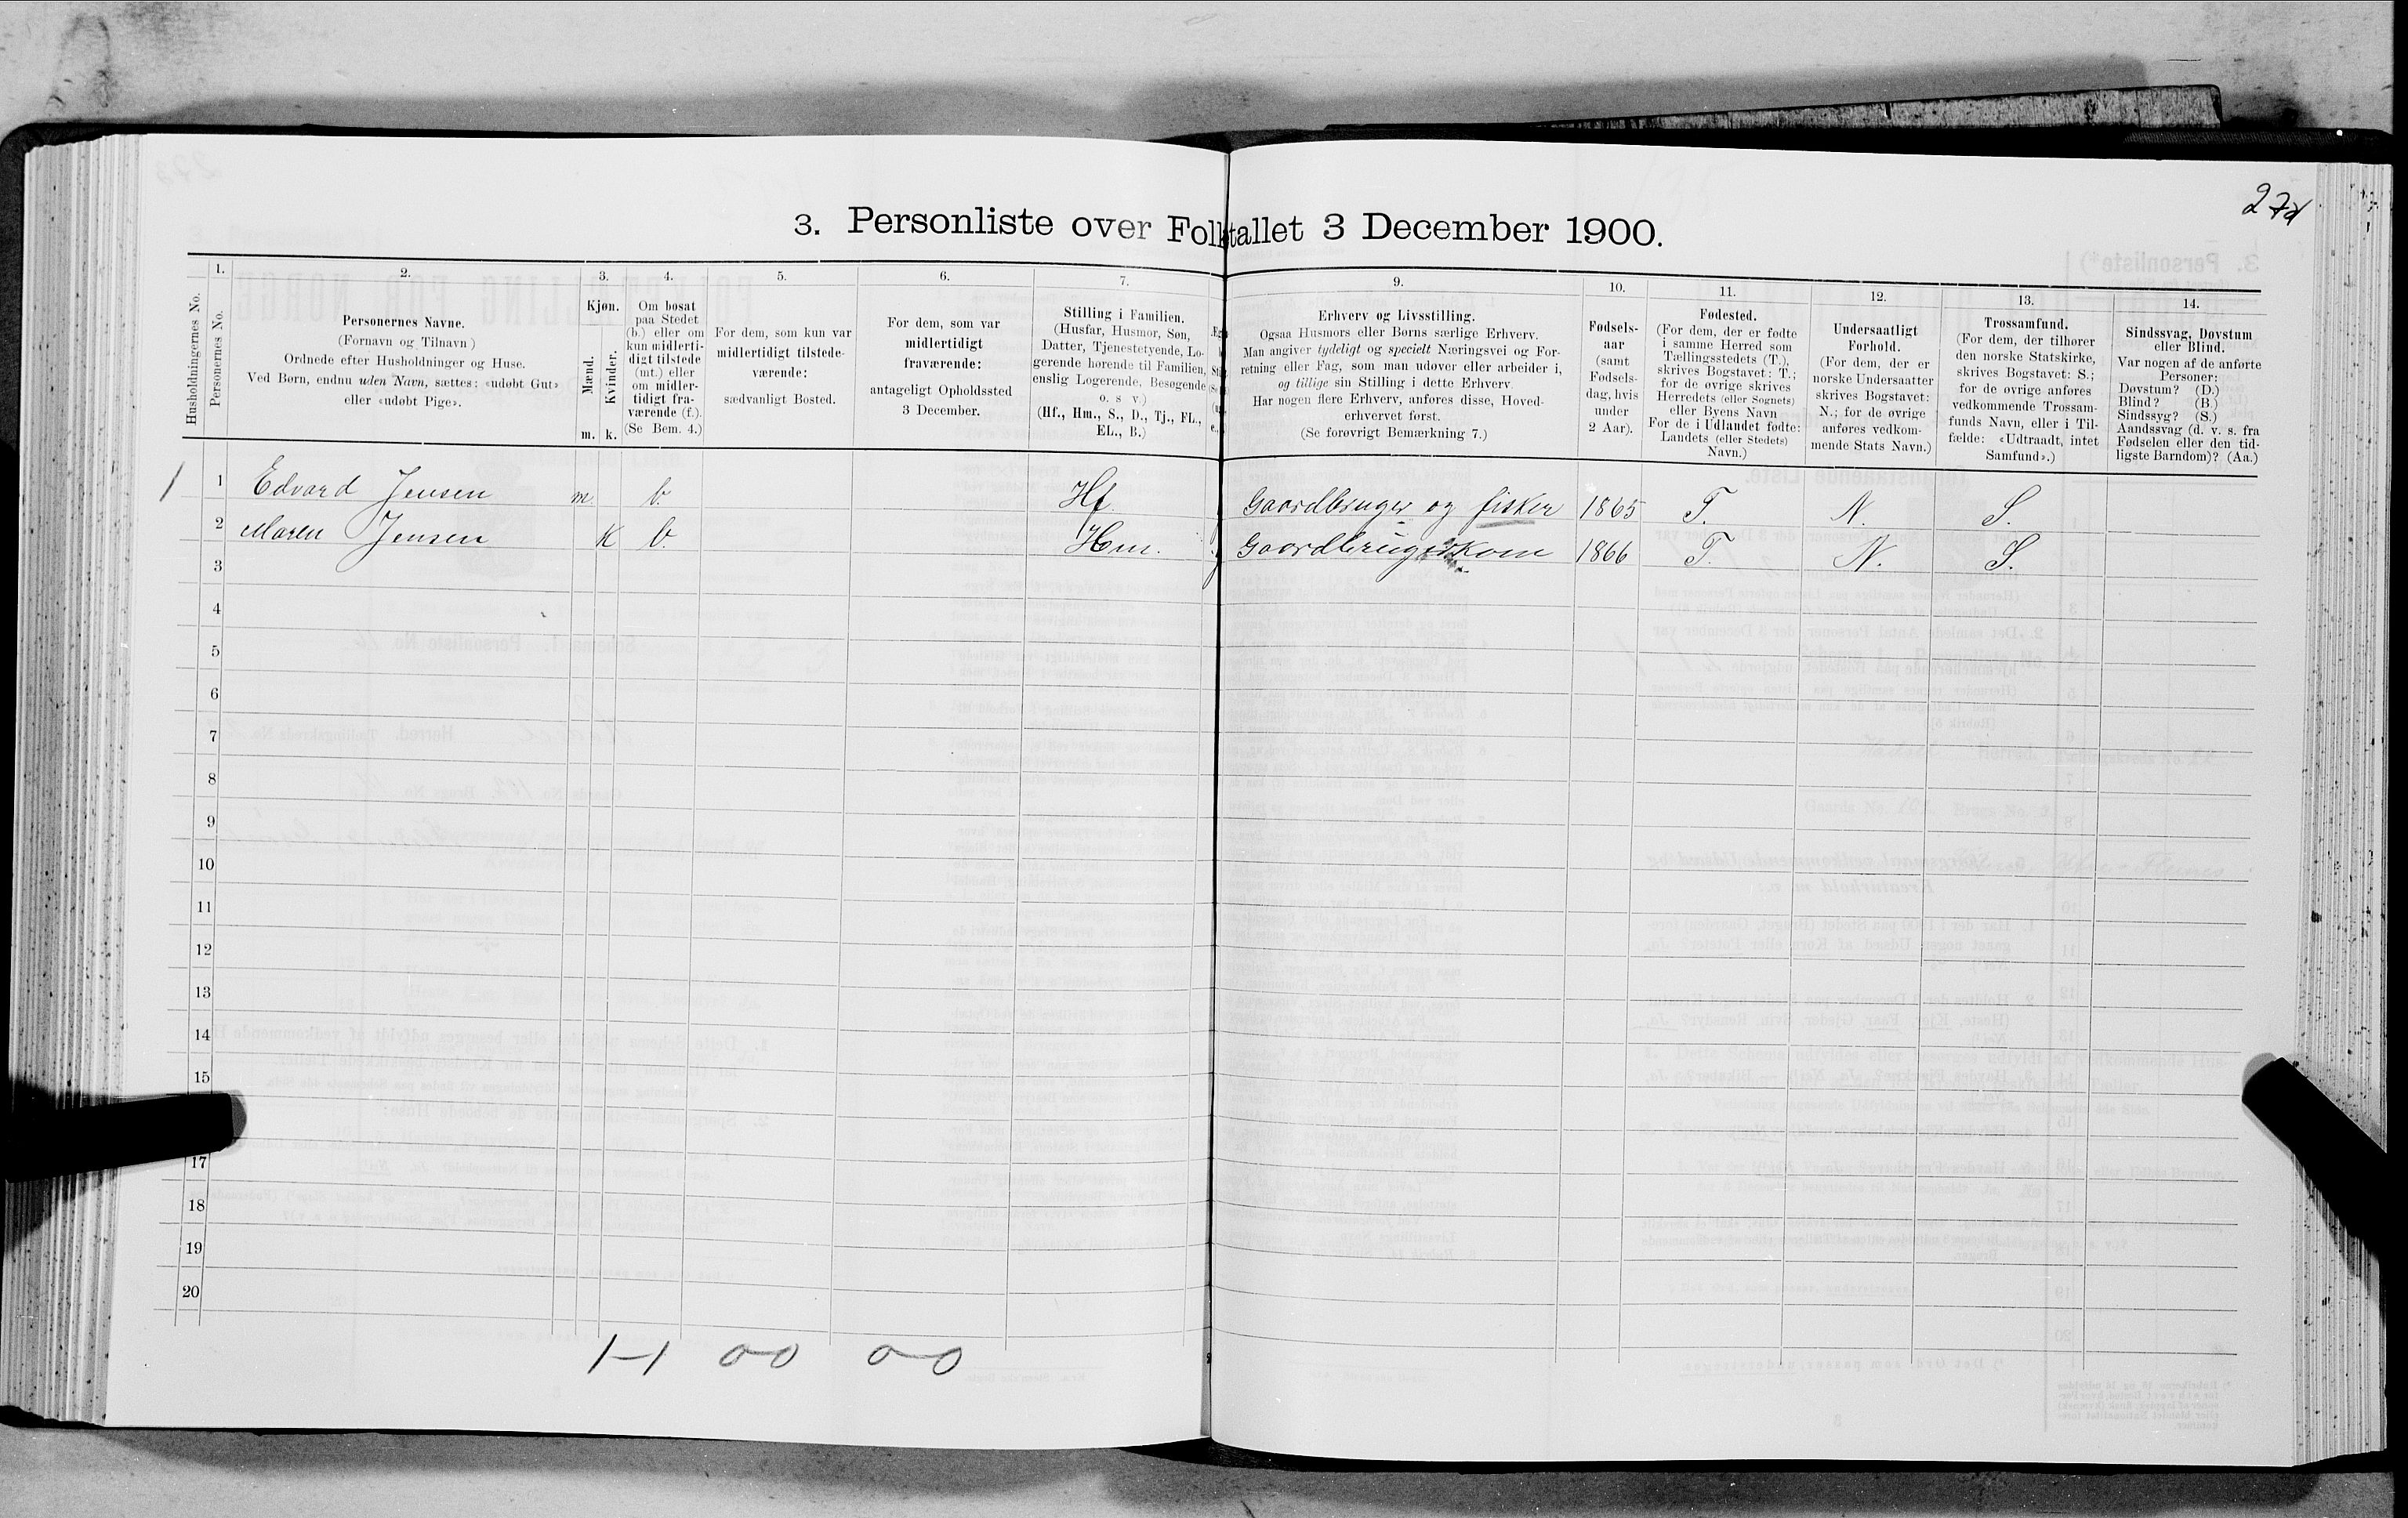 3. Personliste over Folketallet 3 December 1900.
1. 2. 3. 4. 5. 6. 7. 9. 10. 11. 12. 13. 14.
Husholdningernes No.
Personernes No.
Personernes Navne.
(Fornavn og Tilnavn)
Ordnede efter Husholdninger og Huse.
Ved Børn, endnu uden Navn, sættes: «udøbt Gut»
eller «udøbt Pige».
Kjøn.
Mænd.
Kvinder.
m. k.
Om bosat
paa Stedet
(b.) eller om
kun midlerti-
digt tilstede
(mt.) eller
om midler-
tidigt fra-
værende (f.).
(Se Bem. 4.)
For dem, som kun var
midlertidigt tilstede-
værende:
sædvanligt Bosted.
For dem, som var
midlertidigt
fraværende:
antageligt Opholdssted
3 December.
Stilling i Familien.
(Husfar, Husmor, Søn,
Datter, Tjenestetyende, Lo-
gerende hørende til Familien,
enslig Logerende, Besøgende
o. s v.)
(Hf., Hm., S., D., Tj., FL.,
EL., B.)
Erhverv og Livsstilling.
Ogsaa Husmors eller Børns særlige Erhverv.
Man angiver tydeligt og specielt Næringsvei og For-
retning eller Fag, som man udøver eller arbeider i,
og tillige sin Stilling i dette Erhverv.
Har nogen flere Erhverv, anføres disse, Hoved-
erhvervet først.
(Se forøvrigt Bemærkning 7.)
Fødsels-
aar
(samt
Fødsels-
dag, hvis
under
2 Aar).
Fødested.
(For dem, der er fødte
i samme Herred som
Tællingsstedets (T.),
skrives Bogstavet: T.;
for de øvrige skrives
Herredets (eller Sognets)
eller Byens Navn
For de i Udlandet fødte:
Landets (eller Stedets)
Navn.)
Undersaatligt
Forhold.
(For dem, der er
norske Undersaatter
skrives Bogstavet:
N.; for de øvrige
anføres vedkom-
mende Stats Navn.)
Trossamfund.
(For dem, der tilhører
den norske Statskirke,
skrives Bogstavet: S.;
for de øvrige anføres
vedkommende Trossam-
funds Navn, eller i Til-
fælde: «Udtraadt, intet
Samfund».)
Sindssvag, Døvstum
eller Blind.
Var nogen af de anførte
Personer:
Døvstum? (D.)
Blind? (B)
Sindssyg? (S.)
Aandssvag (d. v. s. fra
Fødselen eller den tid-
ligste Barndom)? (Aa.)
1 1 Edvard Jensen m. b. Hf. Gaardbruger og fisker 1865 T. N. S.
2 Maren Jensen K b. Hm. Gaardbrugerkone 1866 T. N. S.
3
4
5
6
7
8
9
10
11
12
13
14
15
17
18
19
20
1-1 0-0 0-0